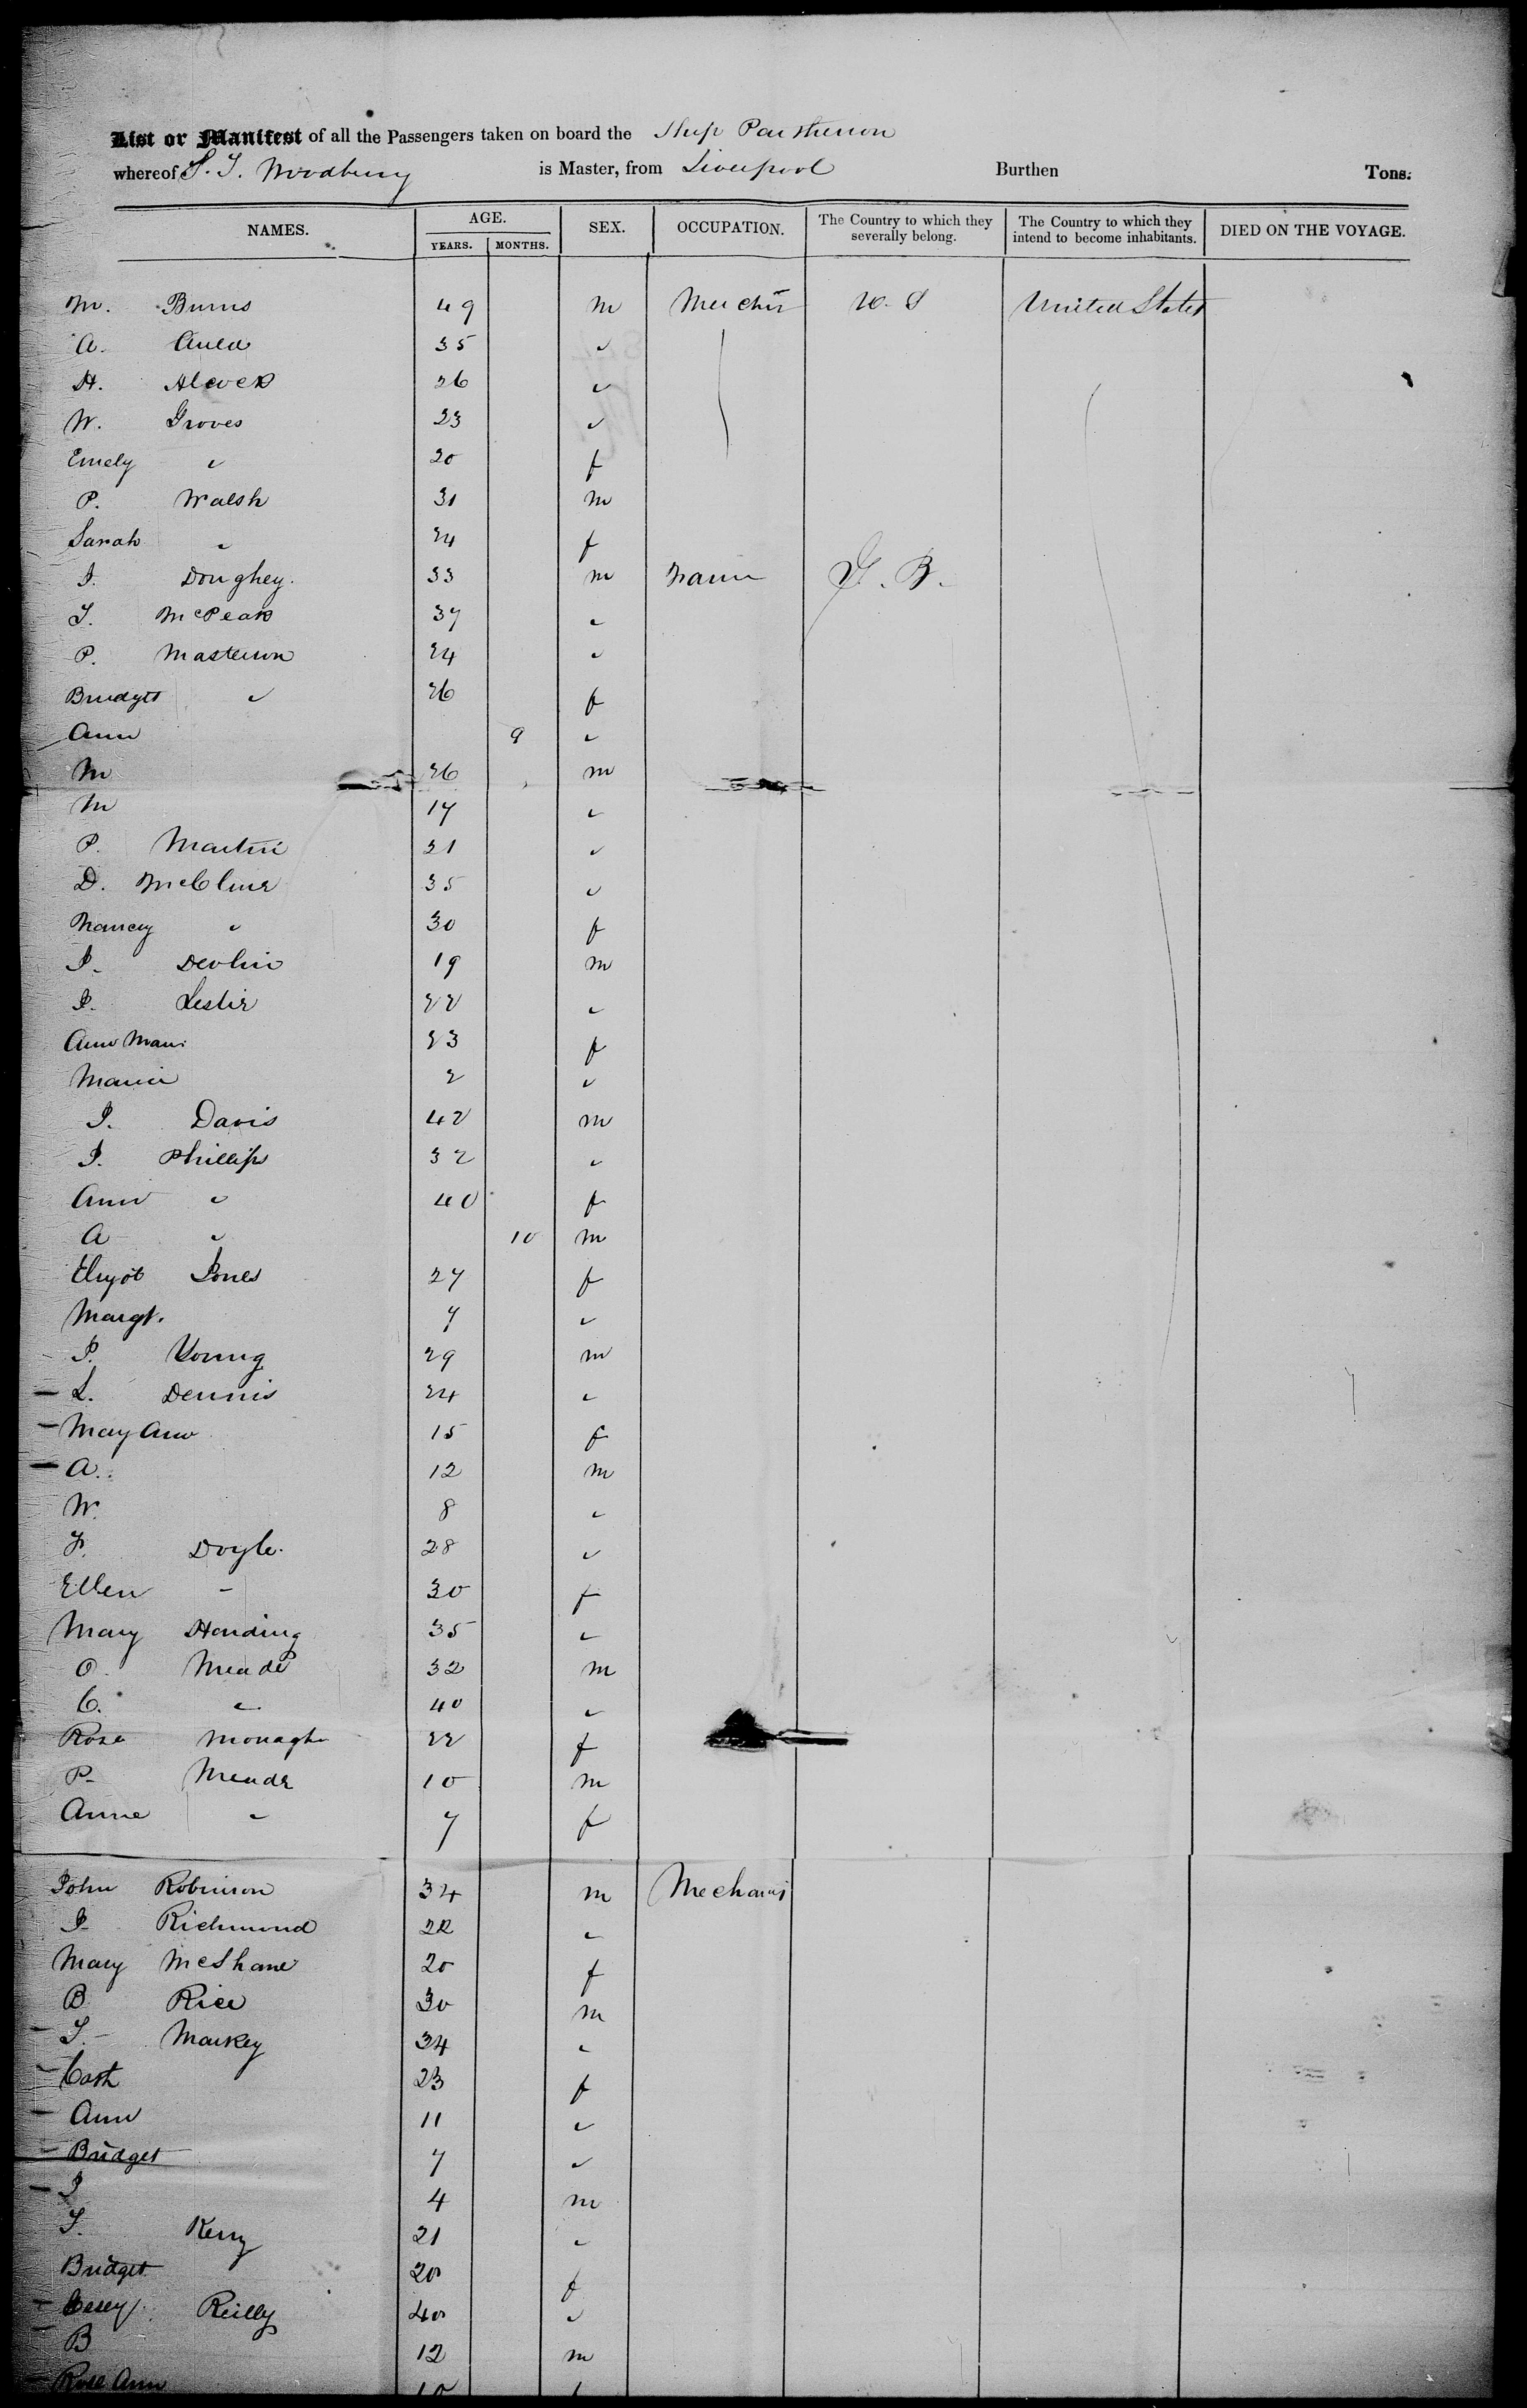 List or Manifest of all the Passengers taken on board the Ship Parthenon
whereof S. I. Woodbury is Master, from Liverpool Burthen Tons.
NAMES. AGE. SEX. OCCUPATION. The Country to which they severally belong. The Country to which they intend to become inhabitants. DIED ON THE VOYAGE.
YEARS. MONTHS.
M. Burns 49 m U. S United States
A. Auld 35 "
H. Alcock 26 "
W. Groves 23 "
Emely " 20 f
P. Walsh 31 m
Sarah " 24 f
I. Doughey. 33 m G. B.
T. McPeak 37 "
P. Masterson 24 "
Bridget " 26 f
Ann 9 "
M 26 m
M 17 "
P. Martin 21 "
D. McClure 35 "
Nancy " 30 f
I. Devlin 19 m
I. Leslie 22 "
Ann Mari 23 f
Maria 2 "
I. Davis 42 m
I. Phillips 32 "
Ann " 40 f
A " 10 m
Jones 27 f
Margt. 7 "
P. Young 29 m
L. Dennis 24 "
Mary Ann 15 f
A. 12 m
W. 8 "
F. Doyle. 28 "
Ellen - 30 f
Mary Harding 35 "
O. Meade 32 m
C. " 40 "
Rose Monagh 22 f
P- Meade 10 m
Anne " 7 f
John Robinson 34 m Mechanic
I- Richmond 22 "
Mary McShane 20 f
B Rice 30 m
T. Markey 34 "
Cath 23 f
Ann 11 "
Bridget 7 "
I 4 m
T. Kerry 21 "
Bridget 20 f
Reilly 40 "
B 12 m
Rose Ann 10 f